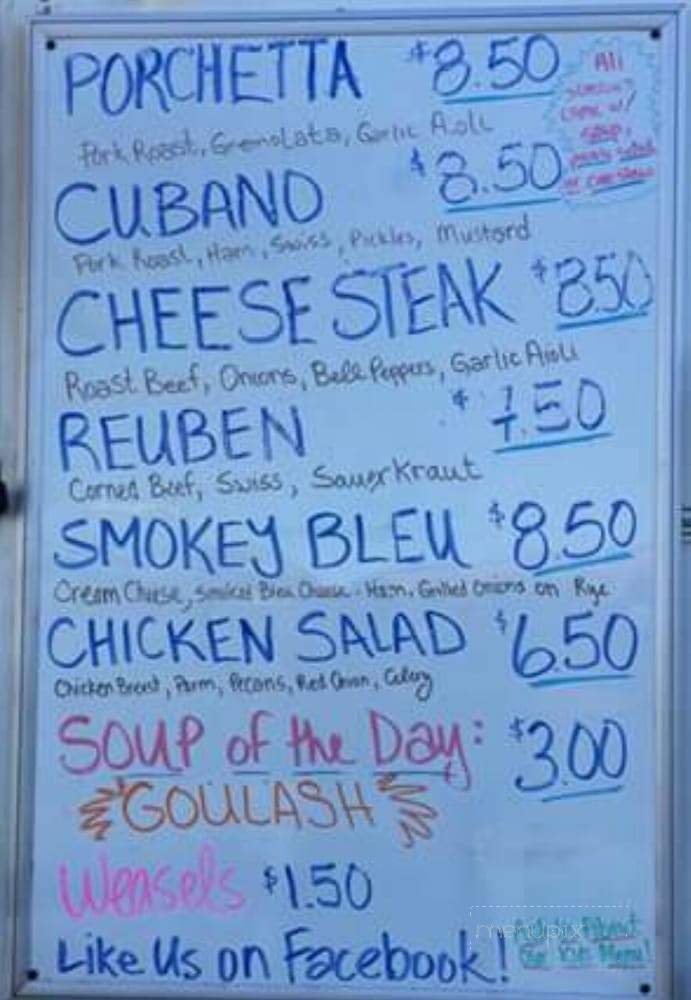 PORCHETTA $8.50
Pork Roast, Gremolata, Garlic Aioli
All
come w/
soup,
CUBANO $8.50
Pork Roast, Ham, Swiss, Pickles, Mustard
CHEESE STEAK $8.50
Roast Beef, Onions, Bell Peppers, Garlic Aioli
REUBEN $7.50
Corned Beef, Swiss, SauerKraut
SMOKEY BLEU $8.50
Cream Cheese, Smoked Bleu Cheese, Ham, Grilled Onions on Rye
CHICKEN SALAD $6.50
Chicken Breast, Parm, Pecans, Red Onion, Celery
SOUP of the Day: $3.00
GOULASH
Weasels $1.50
Like Us on Facebook!
Ask About
Our Kids Menu!
menupix